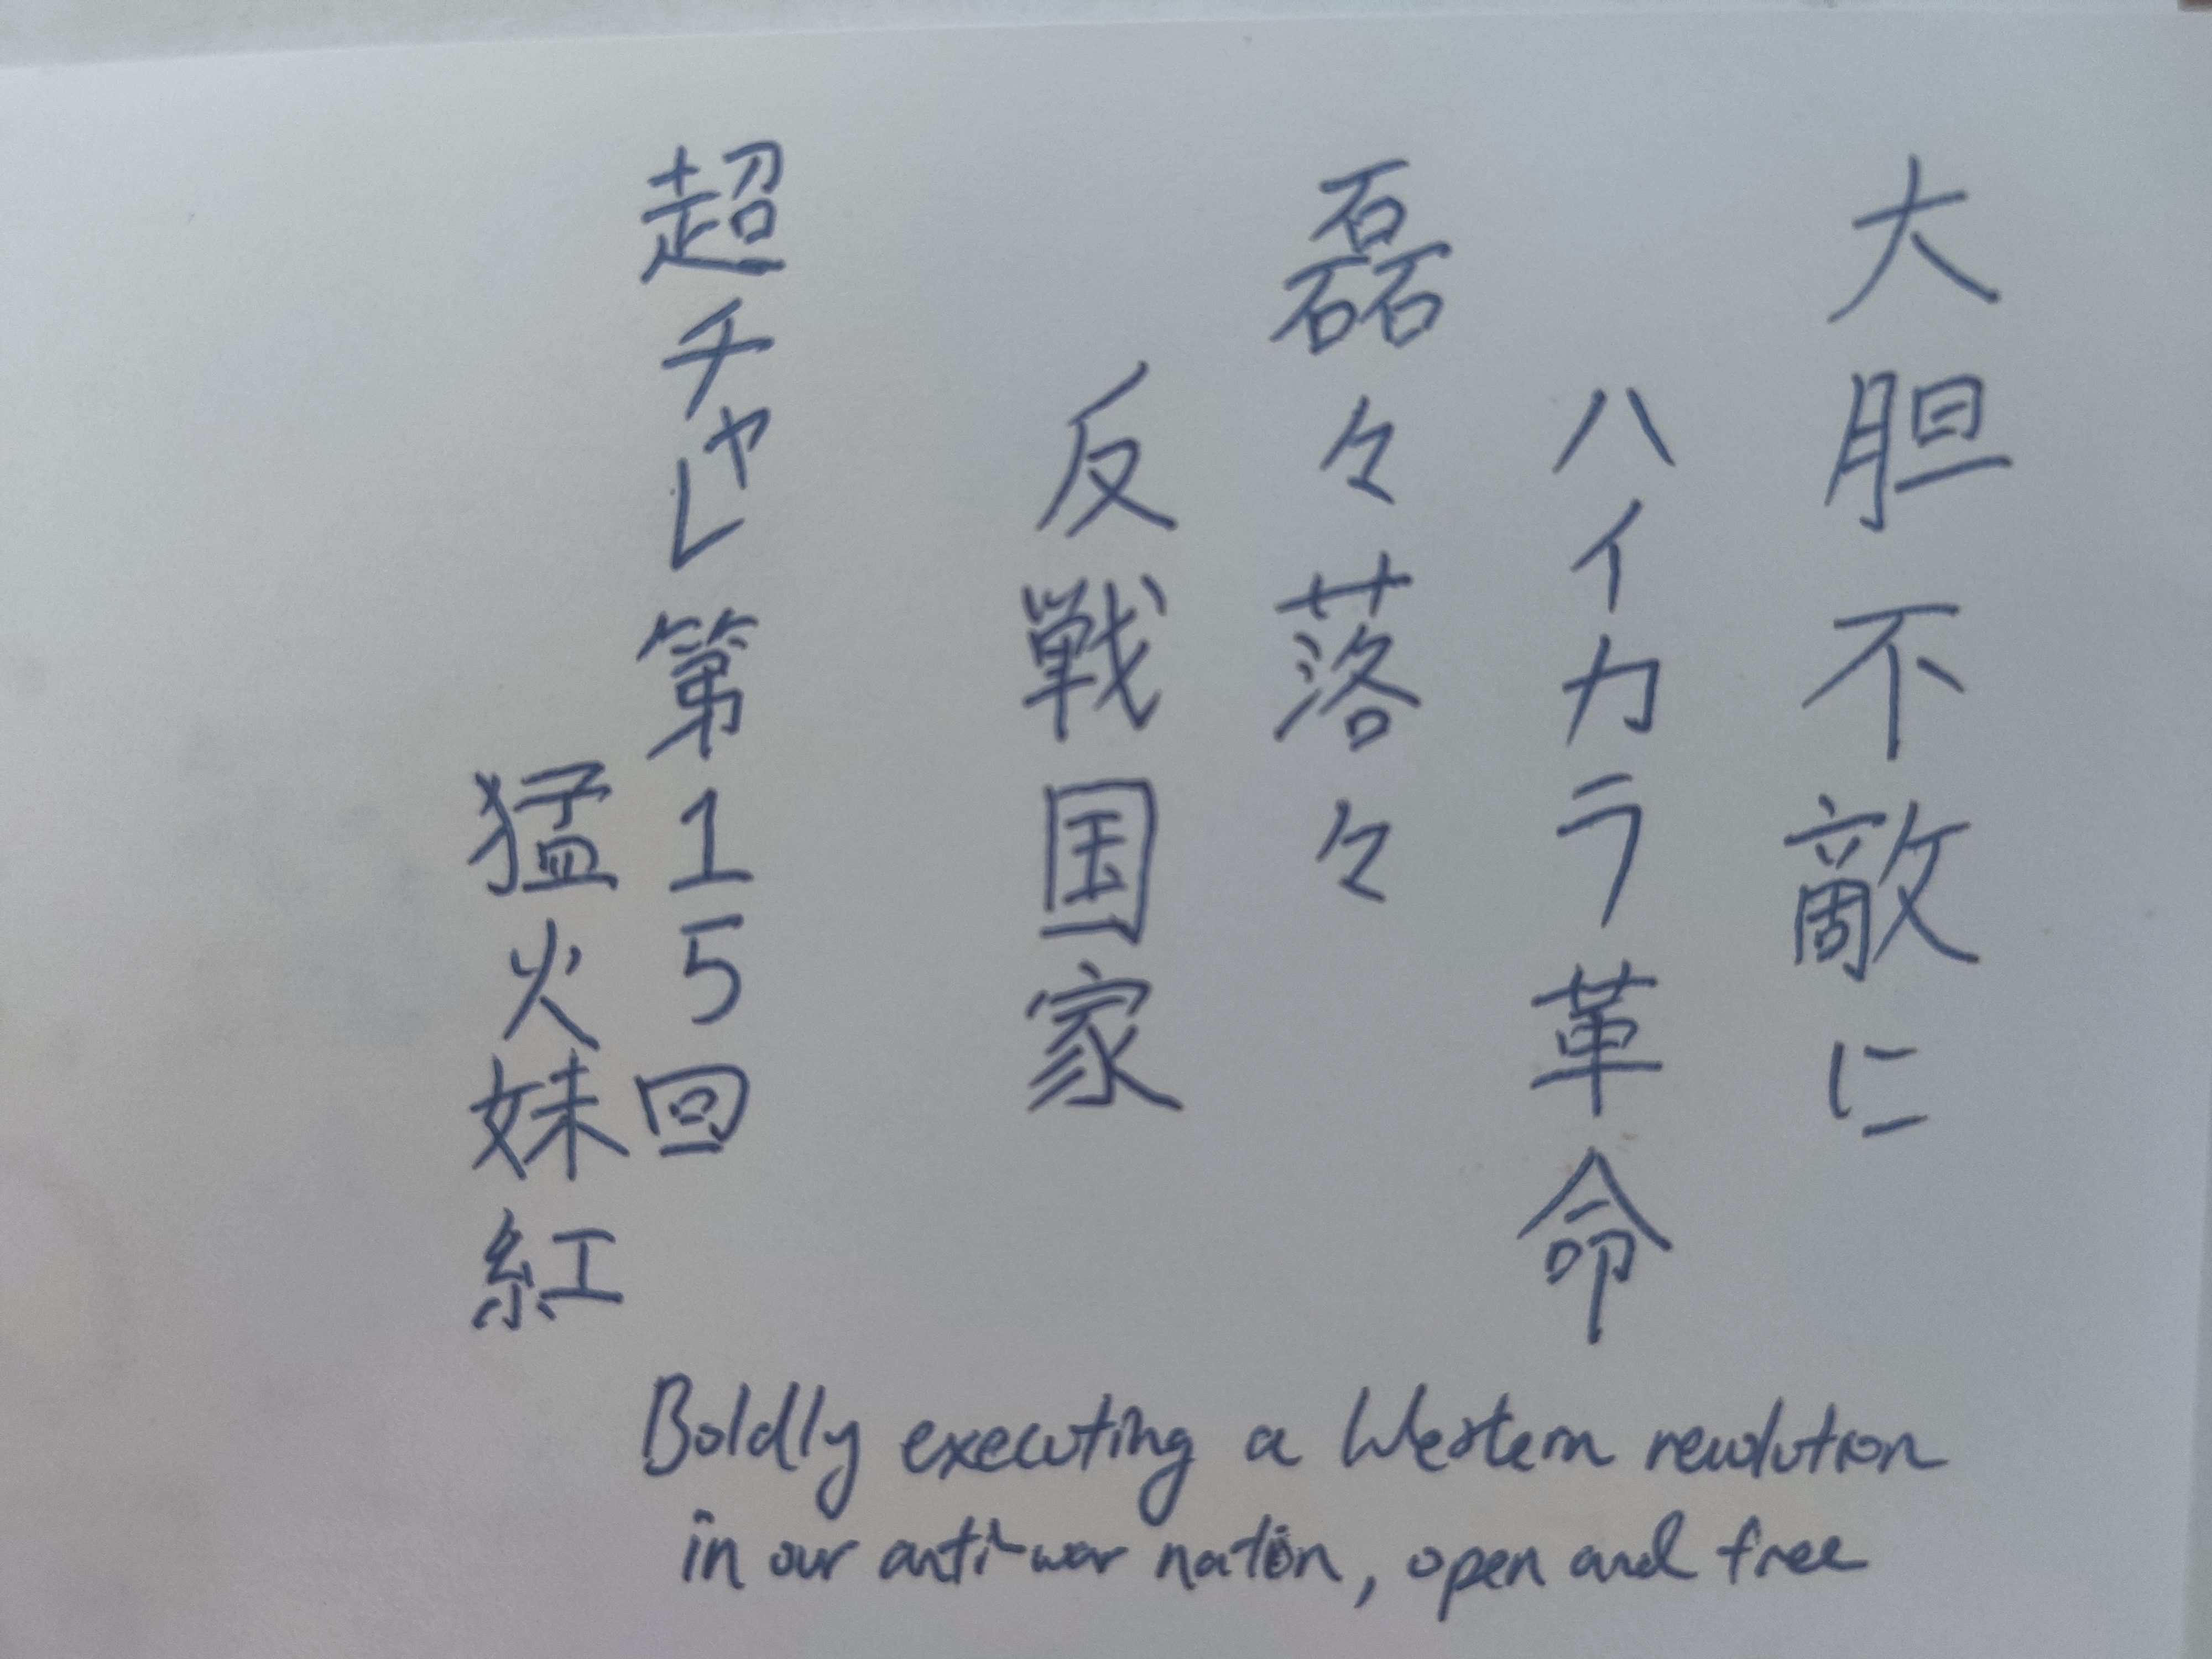 大胆不敵に
ハイカラ革命
磊々落々
反戦国家
超チャレ第15回
猛火妹紅
Boldly executing a Western revolution
in our anti-war nation, open and free